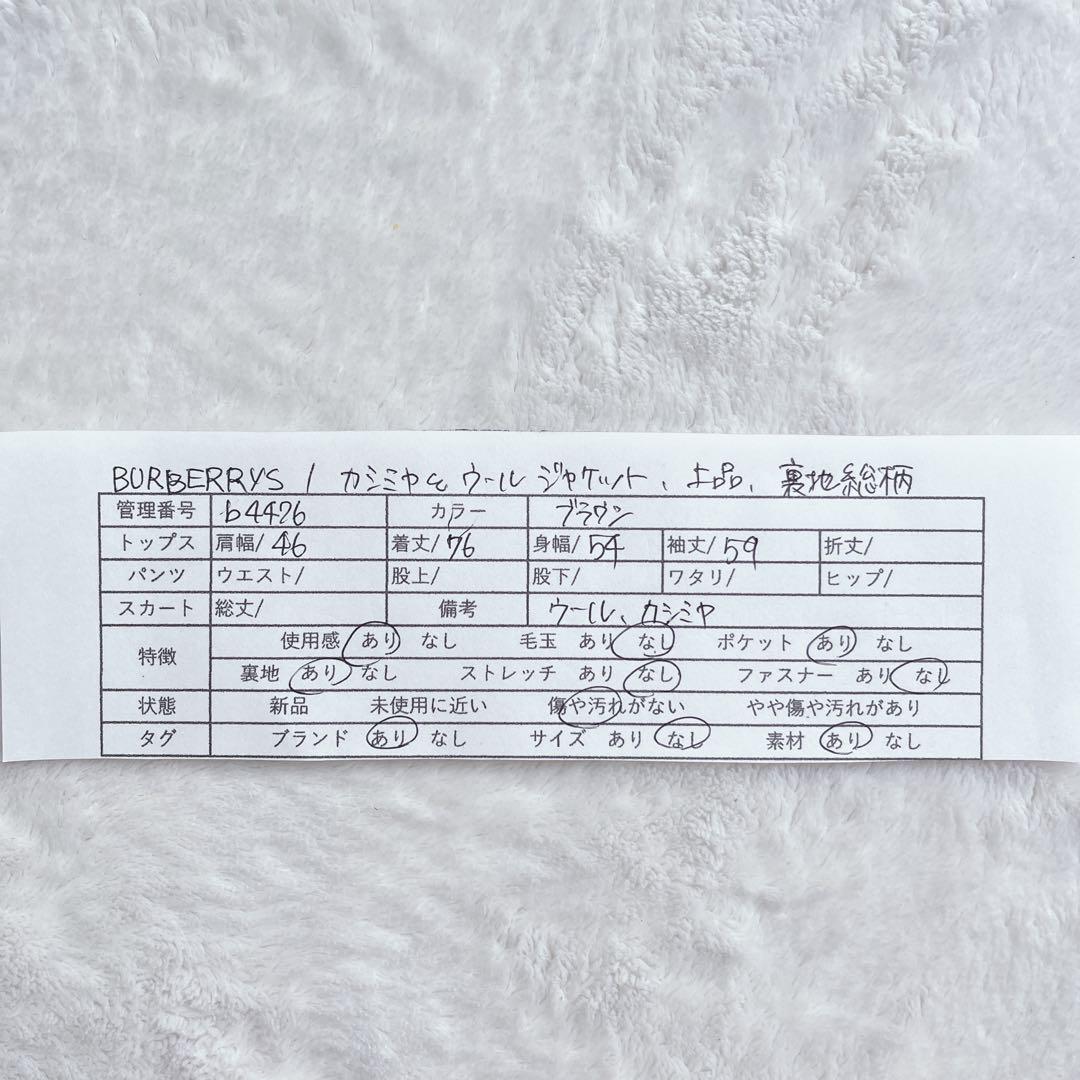 BURBERRYS / カシミヤ& ウール ジャケット、上品、裏地総柄
管理番号 b4426 カラー ブラウン
トップス 肩幅/ 46 着丈/ 76 身幅/ 54 袖丈/ 59 折丈/
パンツ ウエスト/ 股上/ 股下/ ワタリ/ ヒップ/
スカート 総丈/ 備考 ウール、カシミヤ
特徴 使用感 あり なし 毛玉 あり なし ポケット あり なし
裏地 あり なし ストレッチ あり なし ファスナー あり なし
状態 新品 未使用に近い 傷や汚れがない やや傷や汚れがあり
タグ ブランド あり なし サイズ あり なし 素材 あり なし